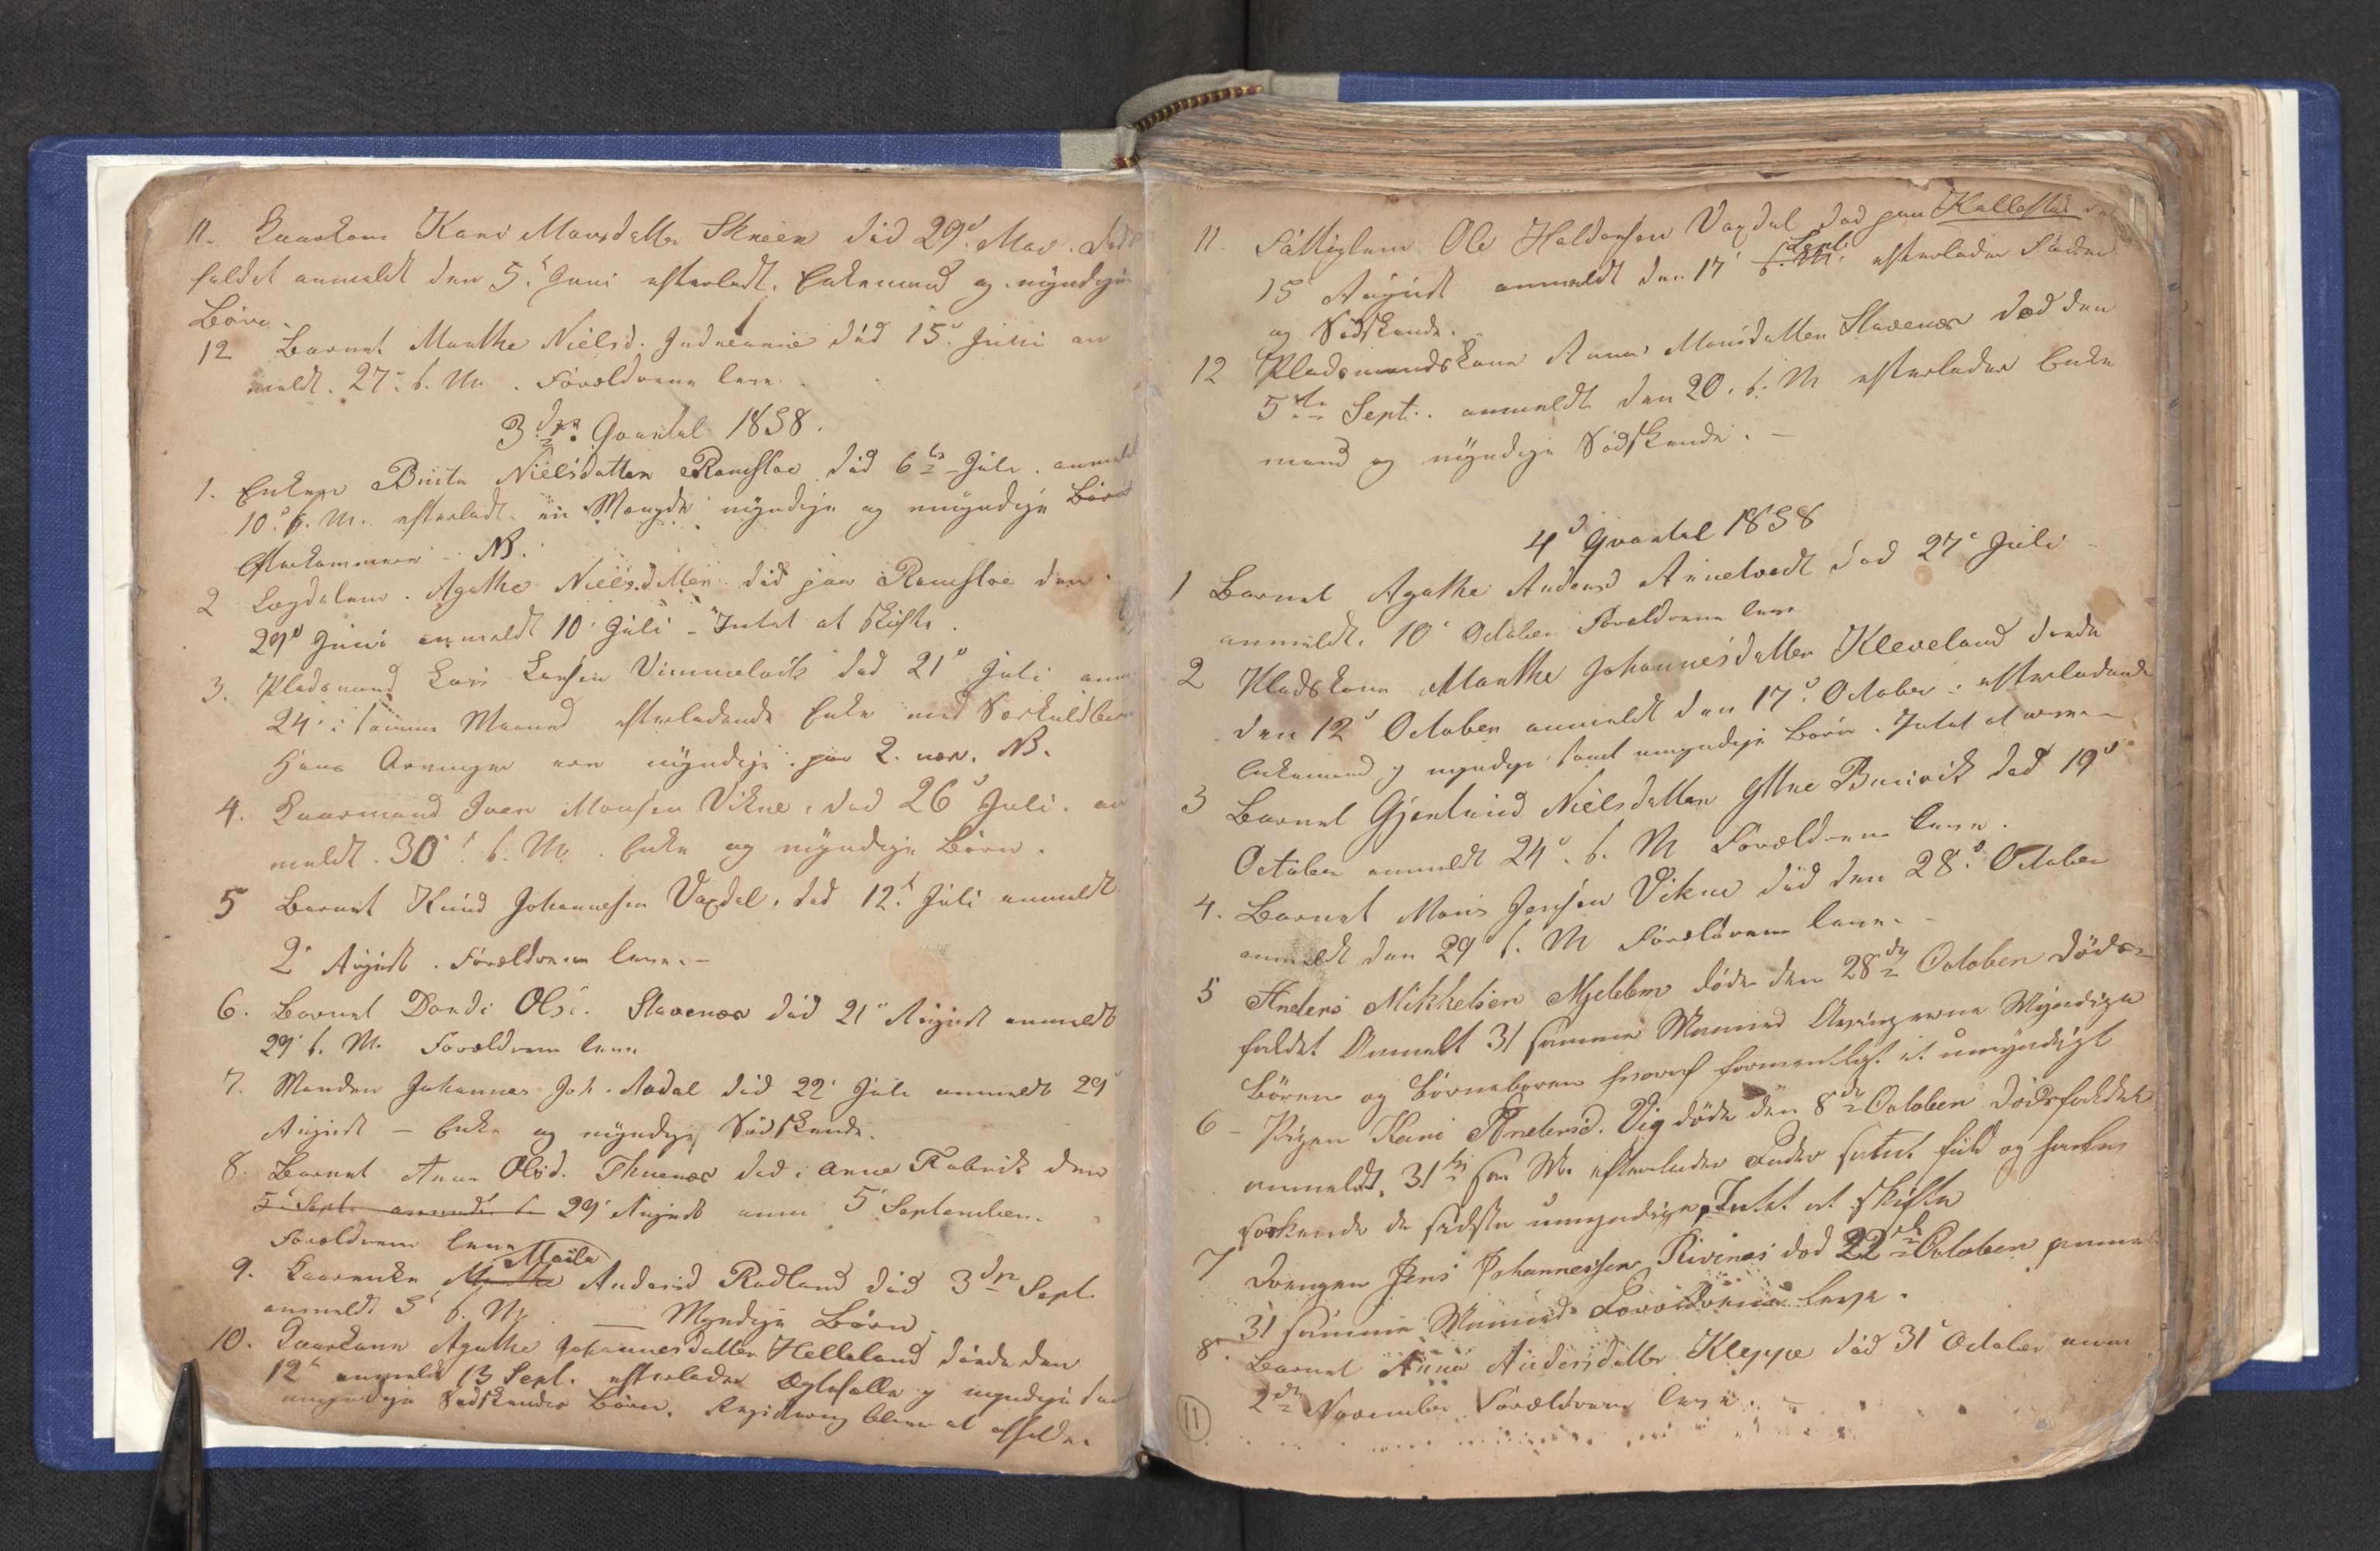 11. Kaarkone Kari Monsdatter Skreen död 29d Mai. Döds
faldet anmeldt den 5t Juni efterladt. Enkemand og myndige
Börn.
12 Barnet Marthe Nielsd. död 15d Juni an
meldt. 27d s. M. Forældrene leve.
3die Qvartal 1858.
1. Enken Brita Nielsdatter Ramsloe död 6te Juli. anmeldt
10d s. M. efterladt en Mængde myndige og umyndige Börn
NB.
2 Lægdslem. Agathe Nielsdatter död paa Ramsloe den
29d Juni anmeldt 10d Juli - Intet at skifte.
3. Pladsmand Lars Larsen Vimmelvik död 21d Juli anm
24d samme Maaned efterladende Enke med Særkuldbörn
Hans Arvinger ere myndige. paa 2. nær. NB.
4. Kaarmand Iver Monsen Vikne, död 26d Juli. an
meldt. 30d s. M. Enke og myndige Börn.
5 Barnet Knud Johannesen Vaxdal. död 12t Juli anmeldt
2d August. Forældrene leve.-
6. Barnet Dordi Olsd. Stavenes död 21d August anmeldt
29d s. M. Forældrene leve
7. Manden Johannes Joh. Aadal död 22d Juli anmeldt 29d
August - Enke og myndige Södskende.
8. Barnet Anna Olsd. död. Arne Fabrik den
5d Sept. anmeldt 29d August anm 5d September.
Forældrene leve
9. Kaarenke Marthe Moila Andersd Rödland död 3die Sept.
anmeldt 5d s. M. - Myndige Börn.
10. Kaarkone Agathe Johannesdatter Helleland döde den
12te anmeldt 13 Sept. efterlader Ægtefælle og myndige samt
umyndige Södskendes Börn. Registrering bliver at afholde.
11. Fattiglem Ole Haldorsen Vaxdal död paa Kallestad den
15 August anmeldt den 17d s. M. Sept. efterlader Fader
og Södskende.
12 Pladsmandskone Anna Monsdatter Stavenes död den
5te Sept. anmeldt den 20. s. M efterlader Enke
mand og myndige Södskende. -
4d Qvartal 1858
1 Barnet Agathe Andersd död 27d Juli
anmeldt. 10d October Forældrene leve
2 Pladskone Marthe Johannesdatter Kleveland döde
den 12d October anmeldt den 17d October. efterladende
Enkemand og myndige samt umyndige Börn. Intet at
3 Barnet Gjertrud Nielsdatter Yttre Bruvik död 19d
October anmeldt 24d s. M Forældrene leve.
4. Barnet Mons Jensen Vikne död den 28d October
anmeldt den 29d s. M Forældrene leve. -
5 Anders Mikkelsen Mjeldem döde den 28de October Döds-
faldet Anmelt 31 samme Maaned Arvingerne Myndige
Börn og Börneborn hvoraf formentligt et umyndigt
6 - Pigen Kari Andersd. Vig döde den 8de October Dödsfaldet
anmeldt. 31te sm M. efterlader Fader samt hel og halv
söskende de sidste umyndige, Intet at skifte
7 Drengen Jens Johannessen Rivenes död 22de October anmel
31 samme Maaned Forældrene leve.
8. Barnet Anna Andersdatter Kleppe död 31d October anm
2den November Forældrene leve. -
11